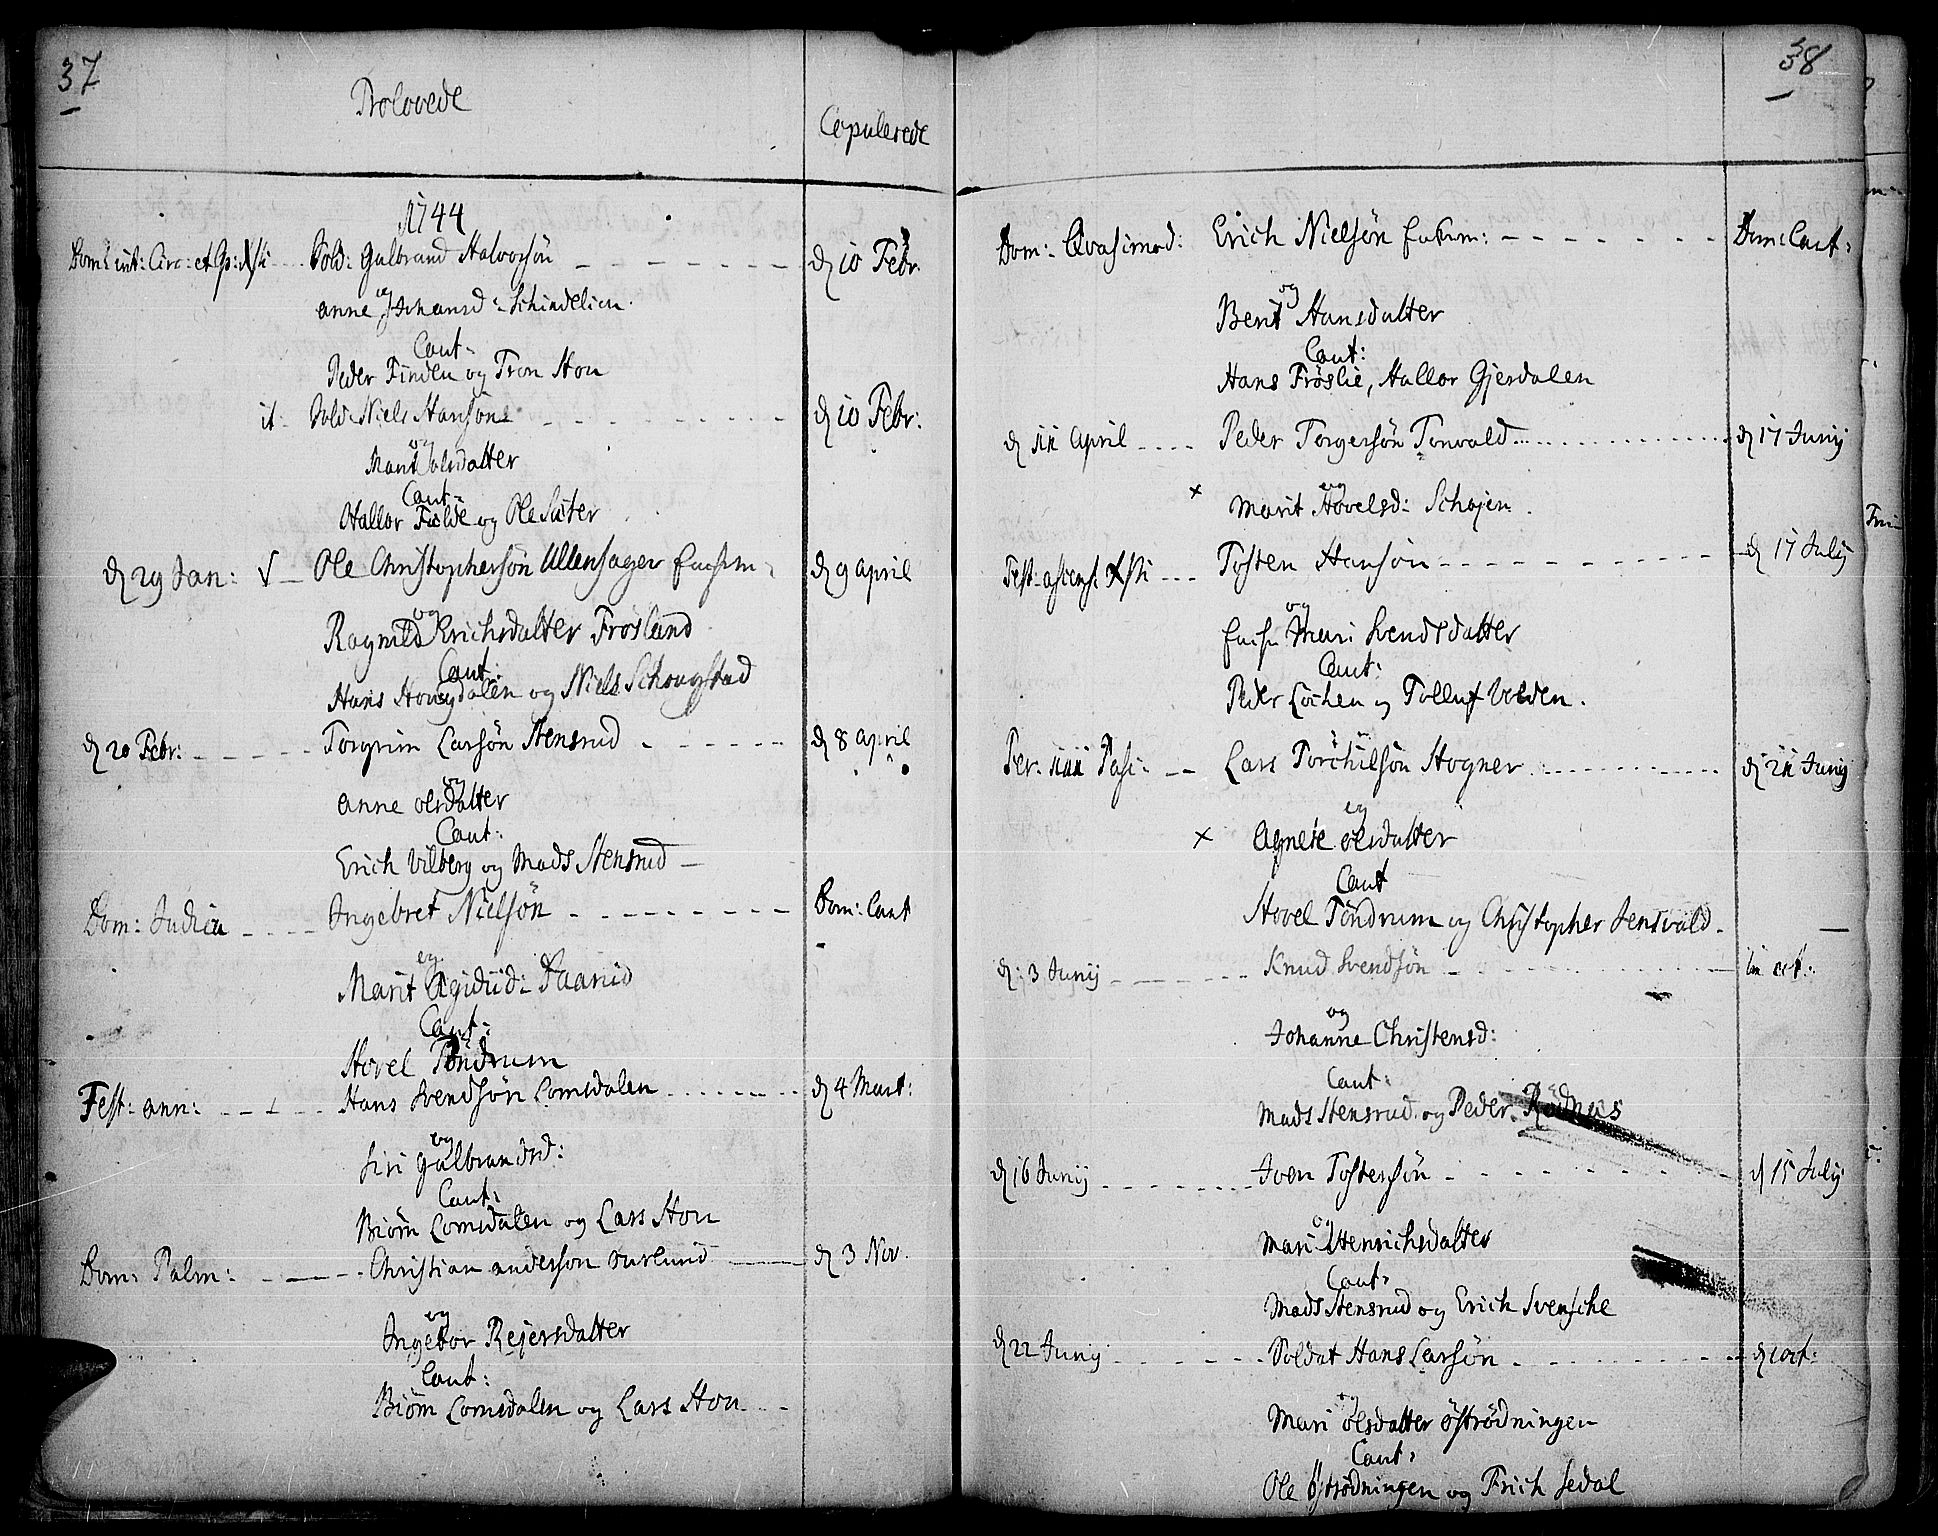 37
Trolovede
Copulerede
1744
Dom: int: Circ: et Ep: Xsti Sold: Gulbrand Halvorsøn d 10 Febr.
og
anne Johansd: Schindelien
Caut:
Peder Finden og Tron Hou
it. Sold: Niels Hansøn d 10 Febr:
og
Marit olsdatter
Caut:
Hallor Fulde og Ole Sæter
d 29 Jan: Ole Christophersøn Ullensager d 9 April
og
Ragnild Erichsdatter Frøsland
Caut:
Hans Hougdalen og Niels Schougstad
d 20 Febr: Torgrim Larsøn Stensrud d 8 April
og
anne olsdatter
Caut:
Erich Vilberg og Mads Stensrud
Dom: Judica Ingebret Nielsøn Dom: Cant
og
Marit Egidiid:
Caut:
Hovel Tøndrum
Fest: ann: Hans Svendsøn Lomsdalen d 4 Mart:
og
Siri Gulbrandsd:
Caut:
Biørn Lomsdalen og Lars Hou
Dom: Palm: Christian andersøn d 3 Nov.
og
Ingebor Rejersdatter
Caut:
Biørn Lomsdalen og Lars Hou
38
Dom: Qvasimod: Erich Nielsøn Enkem: Dom: Cant:
og
Berit Hansdatter
Caut:
Hans Frøslie, Hallor Gjerdalen
d 11 April Peder Torgersøn Tonvald d 17 Junij
og
x Marit Hovelsd: Schøjen
Fest: ascens: Xsti Tosten Hansøn d 17 Julij
og
Mari Svendsdatter
Caut:
Peder Løchen og Tolluf Volden.
Fer: iii Pasc: Lars Torchilsøn Hogner d 21 Junij
og
x Agnete olsdatter
Caut
Hovel Tøndrum og Christopher Jensvold
d: 3 Junij Knud Svendsøn
og
Johanne Christensd:
Caut:
Mads Stensrud og Peder Rødnæs
d 16 Junij Iver Tostensøn d 15 Julij
og
Mari Henrichsdatter
Caut:
Mads Stensrud og Erich Svensche
d 22 Junij Soldat Hans Larsøn d 1 oct:
og
Mari olsdatter østrødningen
Caut:
Ole østrødningen og Erich Sedal